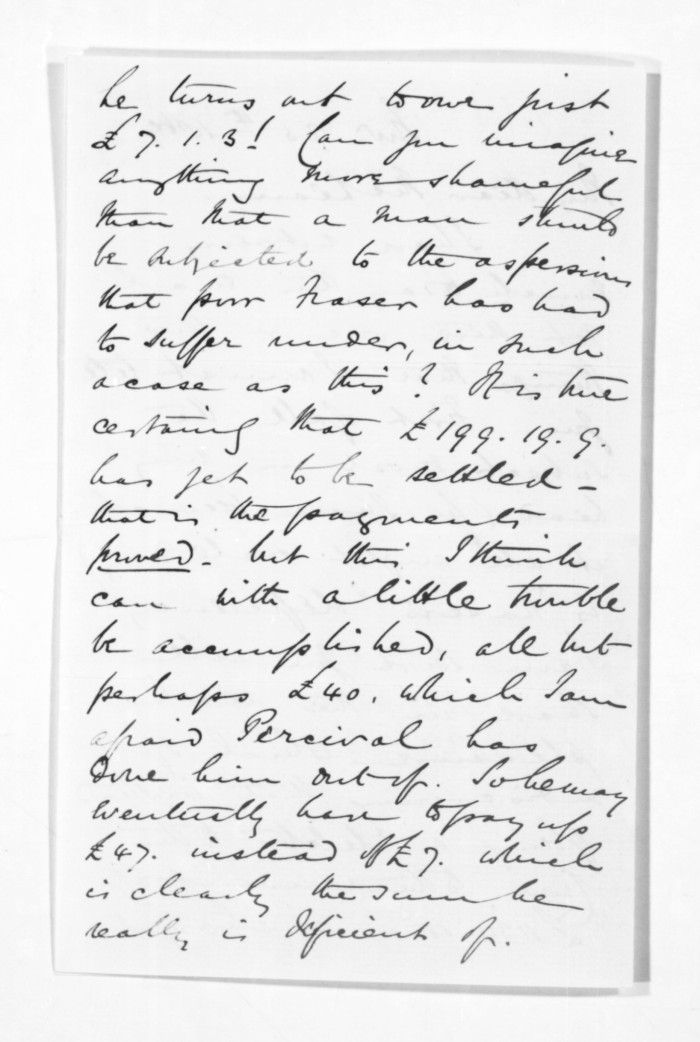 he turns out to owe just
£7.1.3! Can you imagine
anything more shameful
than that a man should
be subjected to the aspersions
that poor Fraser has had
to suffer under, in such
a case as this? It is true
certainly that £199.19.9.
has yet to be settled -
that is the payments
proved - but this I think
can with a little trouble
be accomplished, all but
perhaps £40. which I am
afraid Percival has
done him out of. So he may
eventually have to pay up
£47. instead of £7. which
is clearly the sum he
really is deficient of.